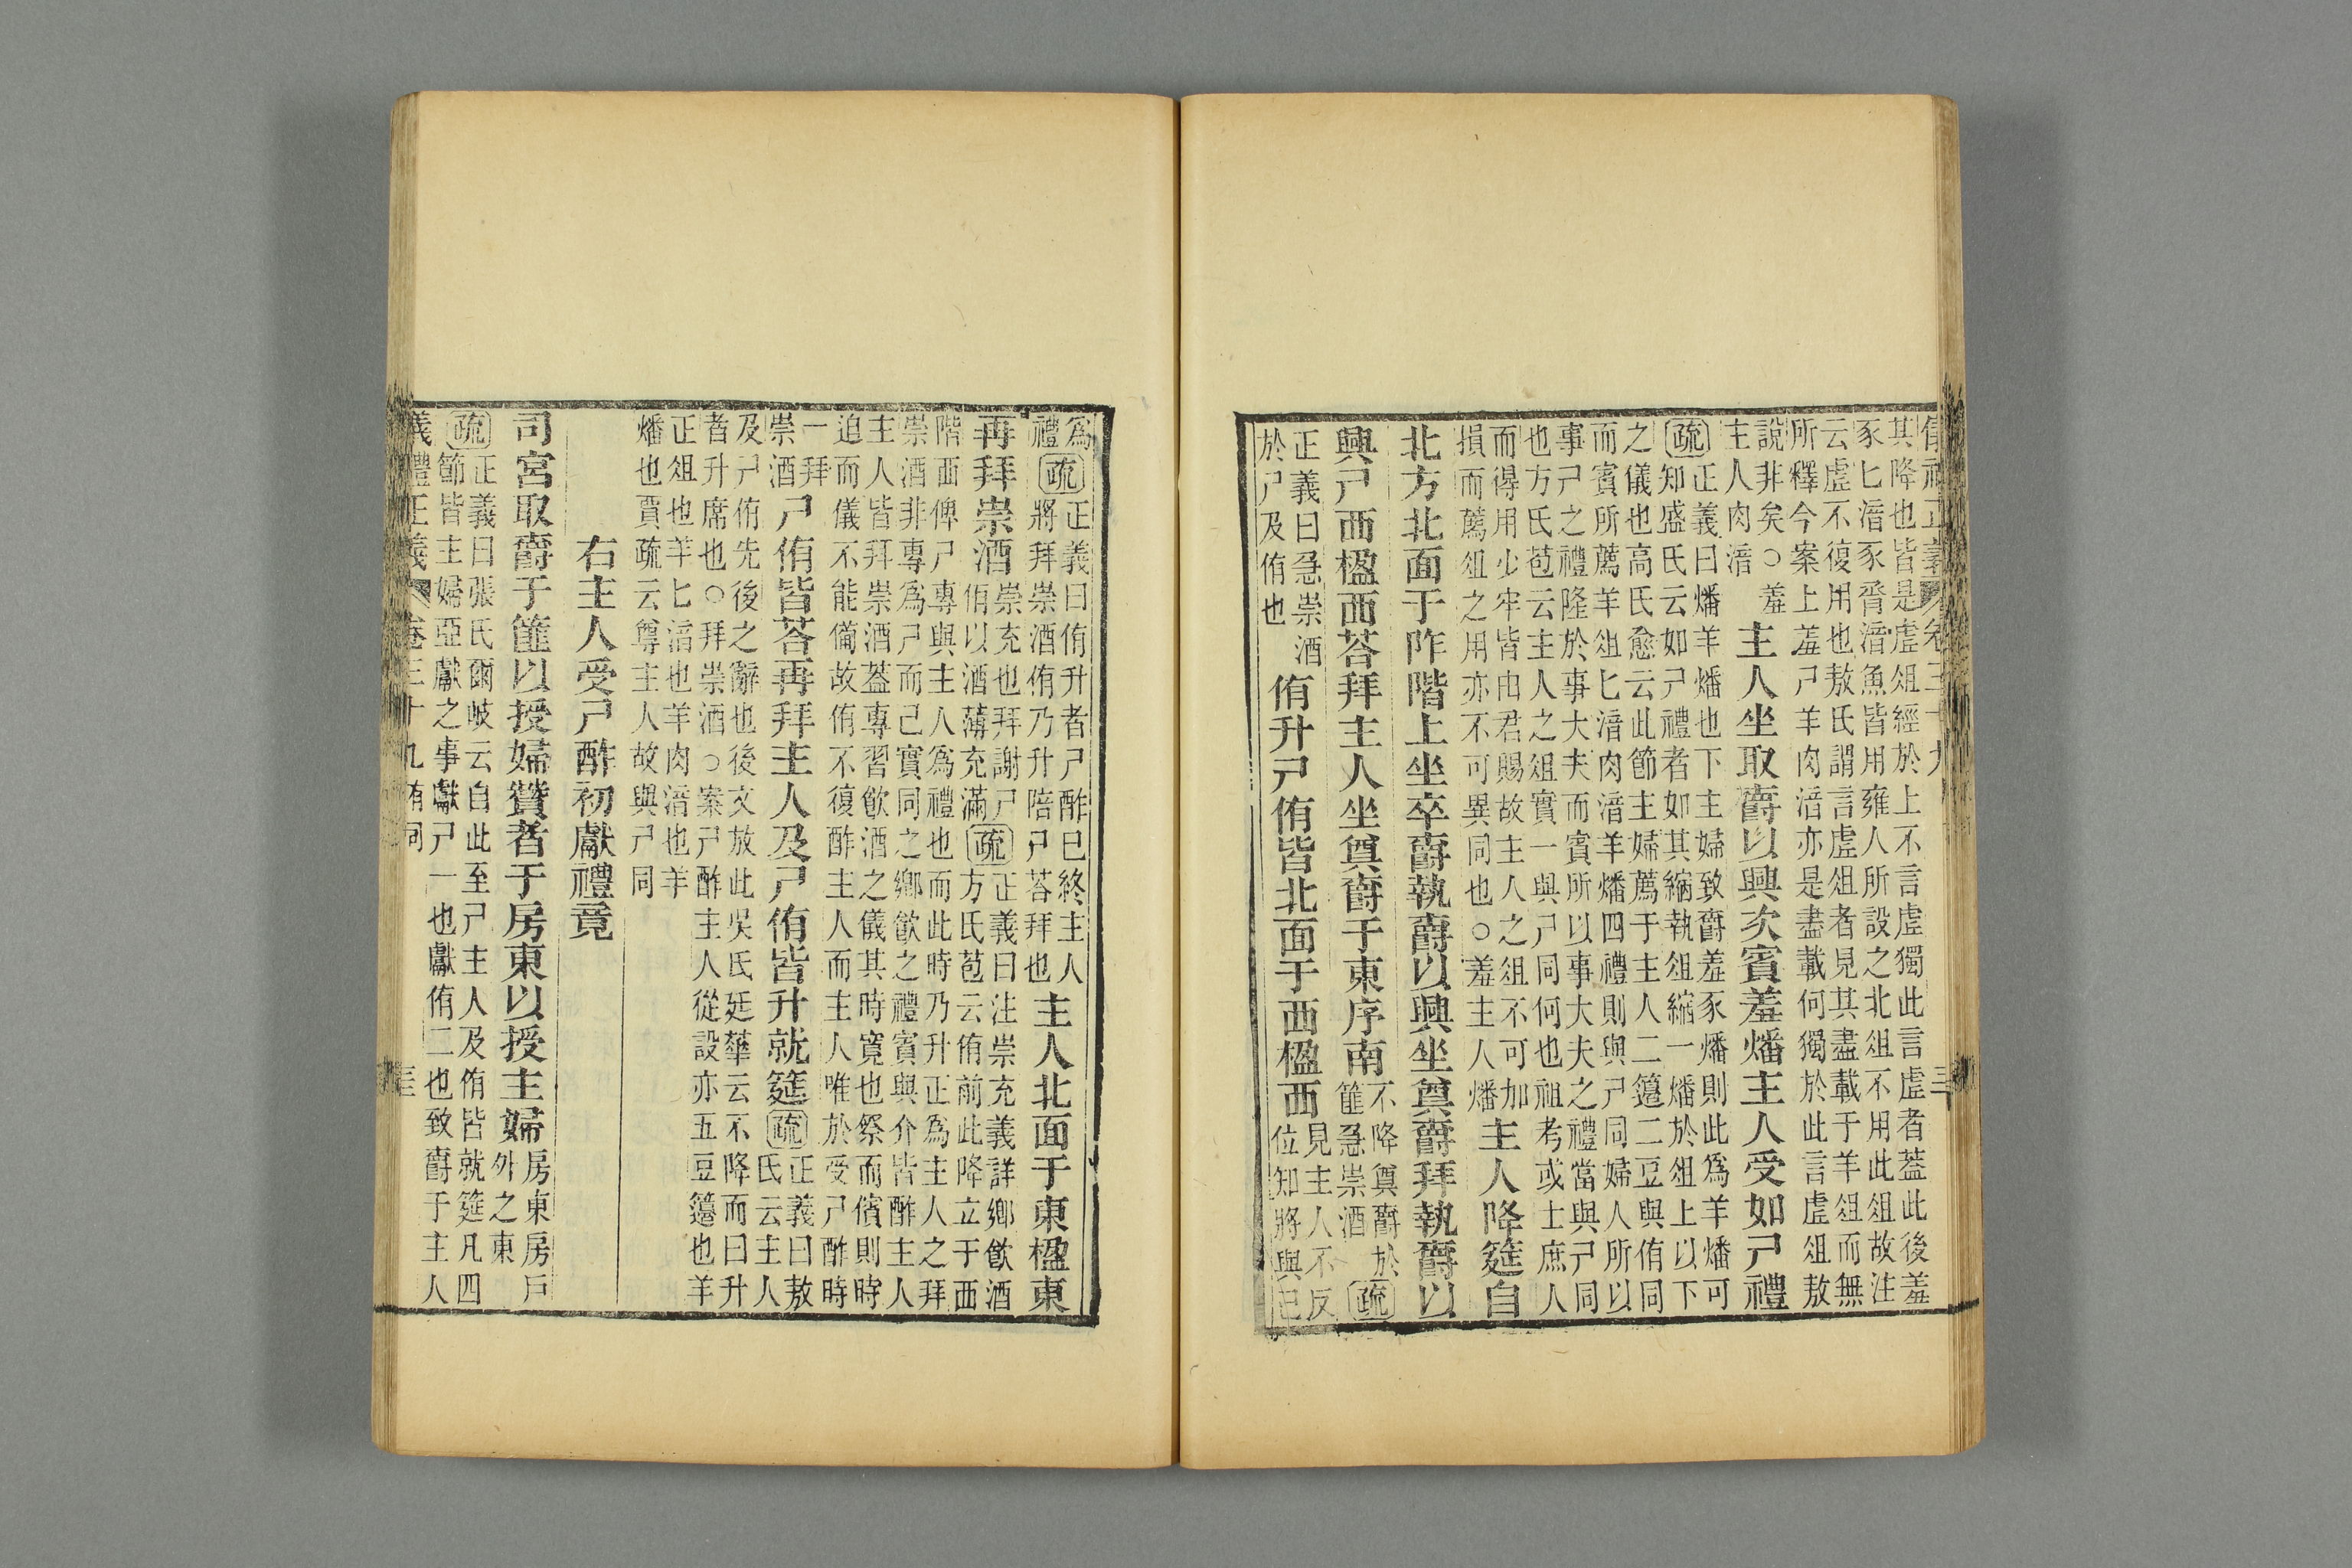 其降也皆是虛俎經於上不言虛獨此言虛者蓋此後羞
豕匕湆豕脀湆魚皆用雍人所設之北俎不用此俎故注
云虛不復用也敖氏謂言虛俎者見其盡載于羊俎而無
所釋今案上羞尸羊肉湆亦是盡載何獨於此言虛俎敖
說非矣○羞
主人肉湆
主人坐取爵以興次賓羞燔主人受如尸禮
疏正義曰燔羊燔也下主婦致爵羞豕燔則此為羊燔可
知盛氏云如尸禮者如其縮執俎縮一燔於俎上以下
之儀也高氏愈云此節主婦薦于主人二籩二豆與侑同
而賓所薦羊俎匕湆肉湆羊燔四禮則與尸同婦人所以
事尸之禮隆於事大夫而賓所以事大夫之禮當與尸同
也方氏苞云主人之俎實一與尸同何也祖考或士庶人
而得用少牢皆由君賜故主人之俎不可加
損而薦俎之用亦不可異同也○羞主人燔
主人降筵自
北方北面于阼階上坐卒爵執爵以興坐奠爵拜執爵以
興尸西楹西荅拜主人坐奠爵于東序南
不降奠爵於
篚急崇酒
疏
正義曰急崇酒
於尸及侑也
侑升尸侑皆北面于西楹西
見主人不反
位知將與己
為
禮
疏正義曰侑升者尸酢已終主人
將拜崇酒侑乃升陪尸荅拜也
主人北面于東楹東
再拜崇酒
崇充也拜謝尸
侑以酒薄充滿
疏正義曰注崇充義詳鄉飲酒
方氏苞云侑前此降立于西
階西俾尸專與主人為禮也而此時乃升正為主人之拜
崇酒非專為尸而己實同之鄉飲之禮賓與介皆酢主人
主人皆拜崇酒蓋專習飲酒之儀其時寬也祭而儐則時
迫而儀不能備故侑不復酢主人而主人唯於受尸酢時
一拜
崇酒
尸侑皆荅再拜主人及尸侑皆升就筵
疏正義曰敖
氏云主人
及尸侑先後之辭也後文放此吳氏廷華云不降而曰升
者升席也○拜崇酒○案尸酢主人從設亦五豆籩也羊
正俎也羊匕湆也羊肉湆也羊
燔也賈疏云尊主人故與尸同
右主人受尸酢初獻禮竟
司宮取爵于篚以授婦贊者于房東以授主婦
房東房戶
外之東
疏正義曰張氏爾岐云自此至尸主人及侑皆就筵凡四
節皆主婦亞獻之事獻尸一也獻侑二也致爵于主人